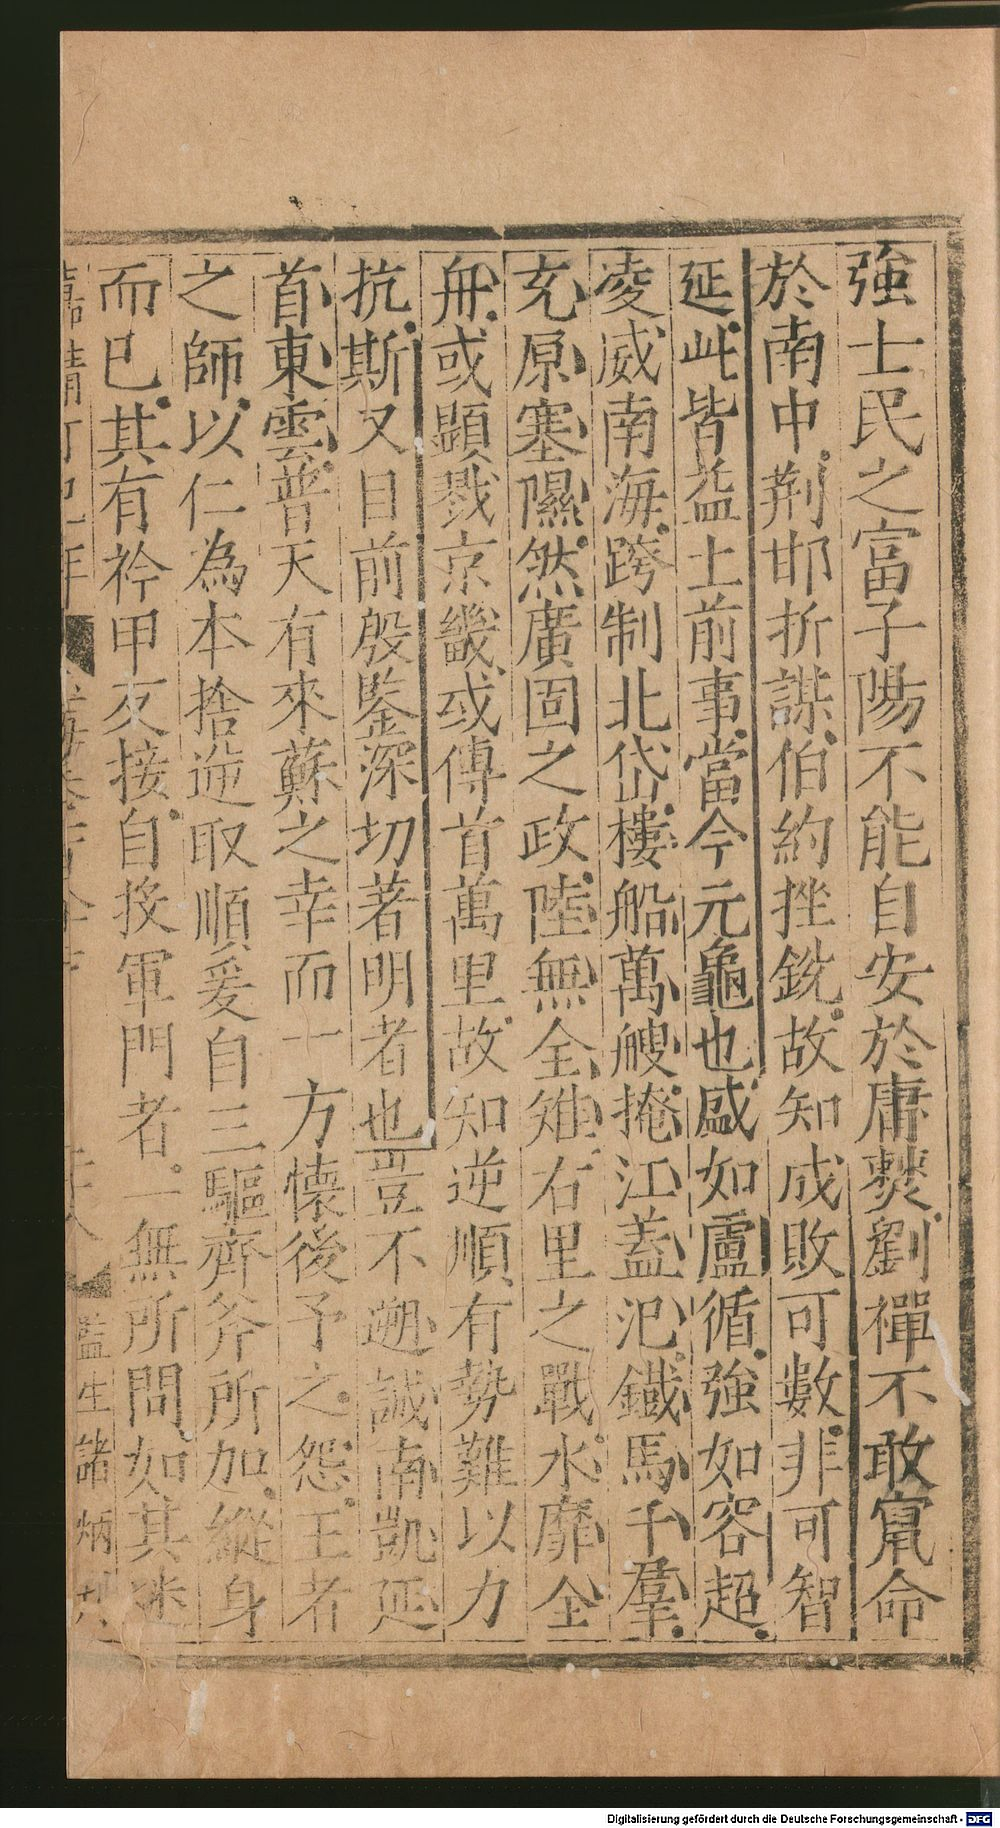 強士民之富子陽不能自安於庸僰劉禪不敢竄命
於南中荆邯折謀伯約挫銳故知成敗可數非可智
延此皆益土前事當今元龜也盛如盧循強如容超
凌威南海跨制北岱樓船萬艘掩江蓋汜鐵馬千羣
充原塞隰然廣固之政陸無全雉右里之戰水靡全
舟或顯戮京畿或傳首萬里故知逆順有勢難以力
抗斯又目前殷鑒深切著明者也豈不遡誠南凱延
首東雲普天有來蘇之幸而一方懐後予之怨王者
之師以仁為本捨逆取順爰自三驅齊斧所加縱身
而已其有衿甲反接自投軍門者一無所問如其迷
嘉靖丁巳年
監生諸炳
Digitalisierung gefördert durch die Deutsche Forschungsgemeinschaft - DFG